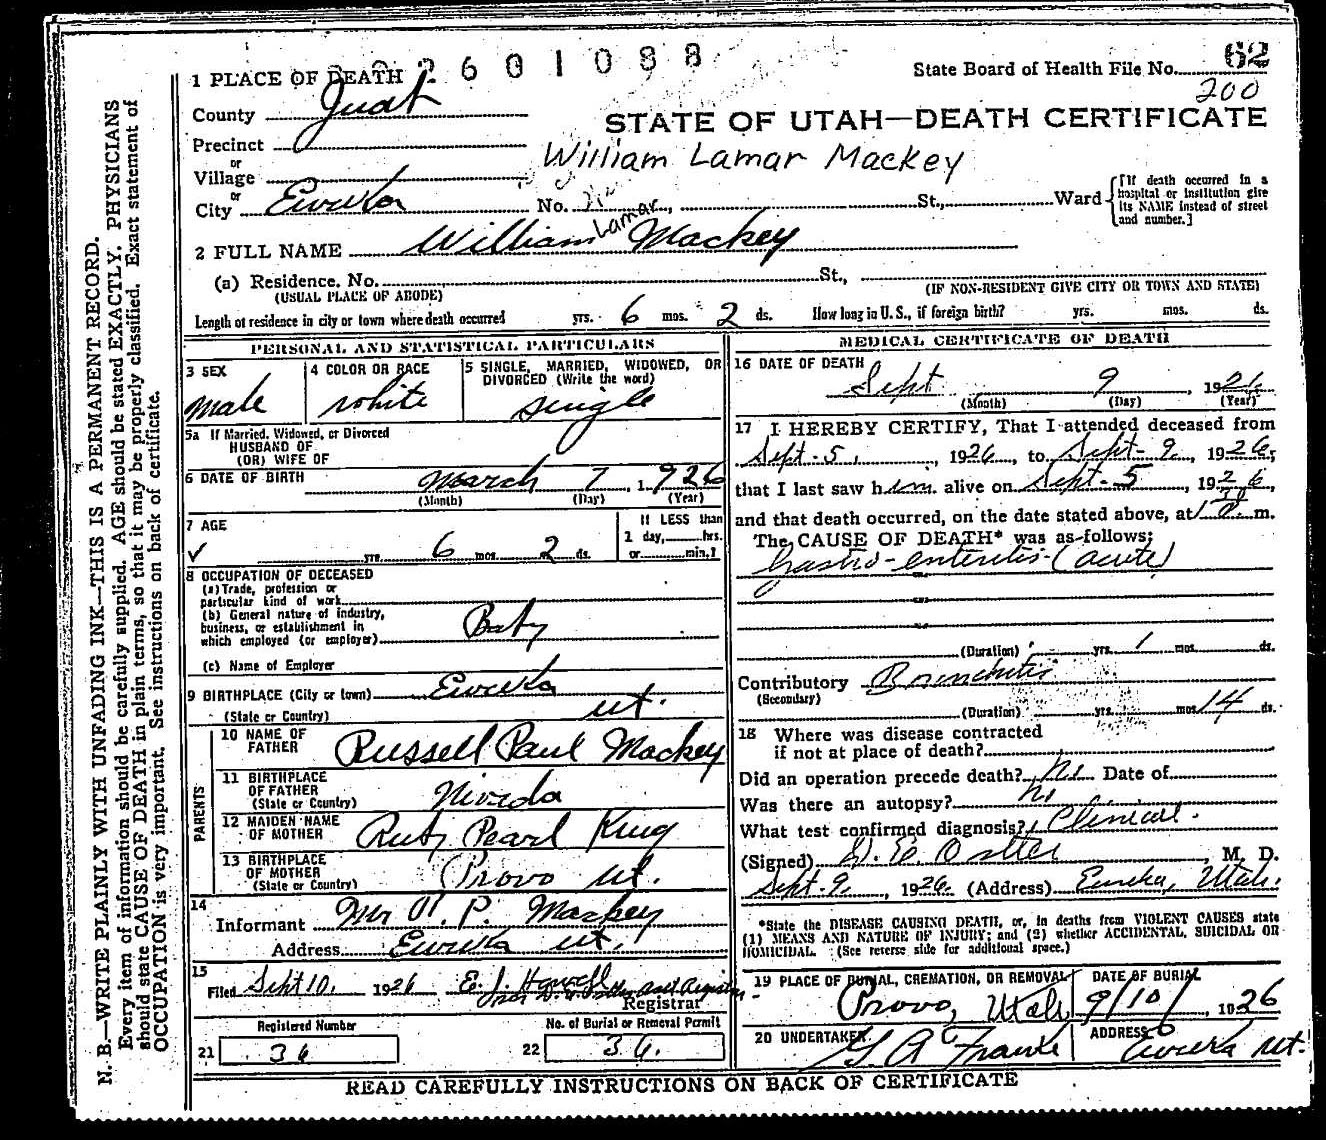 2601088
State Board of Health File No. 62
200
1 PLACE OF DEATH
County Juab
STATE OF UTAH—DEATH CERTIFICATE
Precinct
William Lamar Mackey
or
Village
or
City Eureka No. St., Ward
[If death occurred in a hospital or institution give its NAME instead of street and number.]
2 FULL NAME William Lamar Mackey
(a) Residence. No. St.,
(USUAL PLACE OF ABODE) (IF NON-RESIDENT GIVE CITY OR TOWN AND STATE)
Length of residence in city or town where death occurred yrs. 6 mos. 2 ds. How long in U. S., if foreign birth? yrs. mos. ds.
PERSONAL AND STATISTICAL PARTICULARS
3 SEX
male
4 COLOR OR RACE
white
5 SINGLE, MARRIED, WIDOWED, OR DIVORCED (Write the word)
single
5a If Married, Widowed, or Divorced
HUSBAND OF
(OR) WIFE OF
6 DATE OF BIRTH March 7, 1926
(Month) (Day) (Year)
7 AGE
yrs. 6 mos. 2 ds.
If LESS than
1 day, hrs.
or min.?
8 OCCUPATION OF DECEASED
(a) Trade, profession or
particular kind of work
(b) General nature of industry,
business, or establishment in
which employed (or employer) Baby
(c) Name of Employer
9 BIRTHPLACE (City or town) Eureka
(State or Country) ut.
PARENTS
10 NAME OF FATHER Russell Paul Mackey
11 BIRTHPLACE OF FATHER (State or Country) Nivada
12 MAIDEN NAME OF MOTHER Ruby Pearl King
13 BIRTHPLACE OF MOTHER (State or Country) Provo ut.
14
Informant Mr R. P. Mackey
Address Eureka ut.
15
Filed Sept 10, 1926 E. J. Howell
Registrar
Registered Number
21 36
No. of Burial or Removal Permit
22 36.
MEDICAL CERTIFICATE OF DEATH
16 DATE OF DEATH
Sept 9, 1926
(Month) (Day) (Year)
17 I HEREBY CERTIFY, That I attended deceased from
Sept. 5, 1926, to Sept. 9, 1926,
that I last saw him alive on Sept. 5, 1926,
and that death occurred, on the date stated above, at m.
The CAUSE OF DEATH* was as follows:
Gastro-enteritis (acute)
(Duration) yrs. 1 mos. ds.
Contributory Bronchitis
(Secondary)
(Duration) yrs. mos. 14 ds.
18 Where was disease contracted
if not at place of death?
Did an operation precede death? No Date of
Was there an autopsy? No
What test confirmed diagnosis? Clinical.
(Signed) , M. D.
Sept. 9, 1926. (Address) Eureka, Utah.
*State the DISEASE CAUSING DEATH, or, in deaths from VIOLENT CAUSES state
(1) MEANS AND NATURE OF INJURY; and (2) whether ACCIDENTAL, SUICIDAL OR
HOMICIDAL. (See reverse side for additional space.)
19 PLACE OF BURIAL, CREMATION, OR REMOVAL
Provo, Utah
DATE OF BURIAL
9/10/, 1926
20 UNDERTAKER
ADDRESS
Eureka ut.
READ CAREFULLY INSTRUCTIONS ON BACK OF CERTIFICATE
N. B.—WRITE PLAINLY WITH UNFADING INK—THIS IS A PERMANENT RECORD.
Every item of information should be carefully supplied. AGE should be stated EXACTLY. PHYSICIANS
should state CAUSE OF DEATH in plain terms, so that it may be properly classified. Exact statement of
OCCUPATION is very important. See instructions on back of certificate.